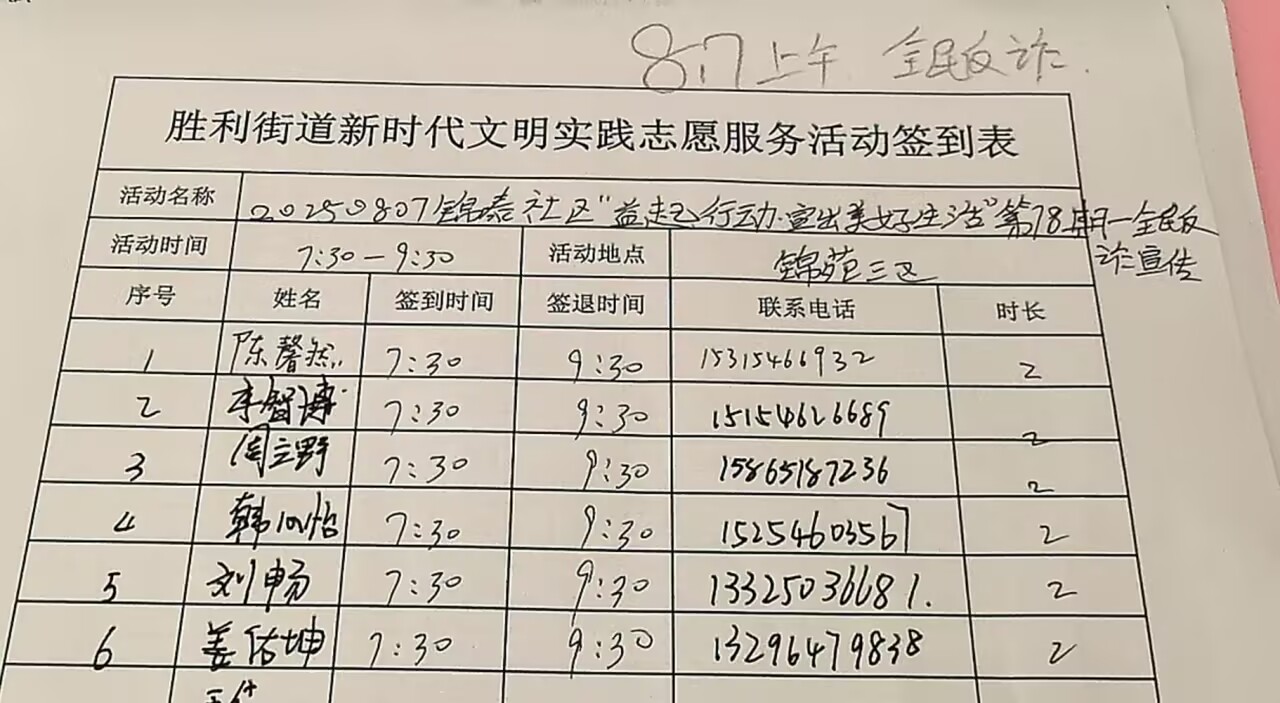 8.7上午 全民反诈.
胜利街道新时代文明实践志愿服务活动签到表
活动名称 20250807锦泰社区"益起行动·宣出美好生活"第78期—全民反诈宣传
活动时间 7:30-9:30 活动地点 锦苑三区
序号 姓名 签到时间 签退时间 联系电话 时长
1 陈馨然 7:30 9:30 15315466932 2
2 李智博 7:30 9:30 15154626689 2
3 周立野 7:30 9:30 15865187236 2
4 韩 怡 7:30 9:30 15254603567 2
5 刘畅 7:30 9:30 13325036681. 2
6 姜佑坤 7:30 9:30 13296479838 2